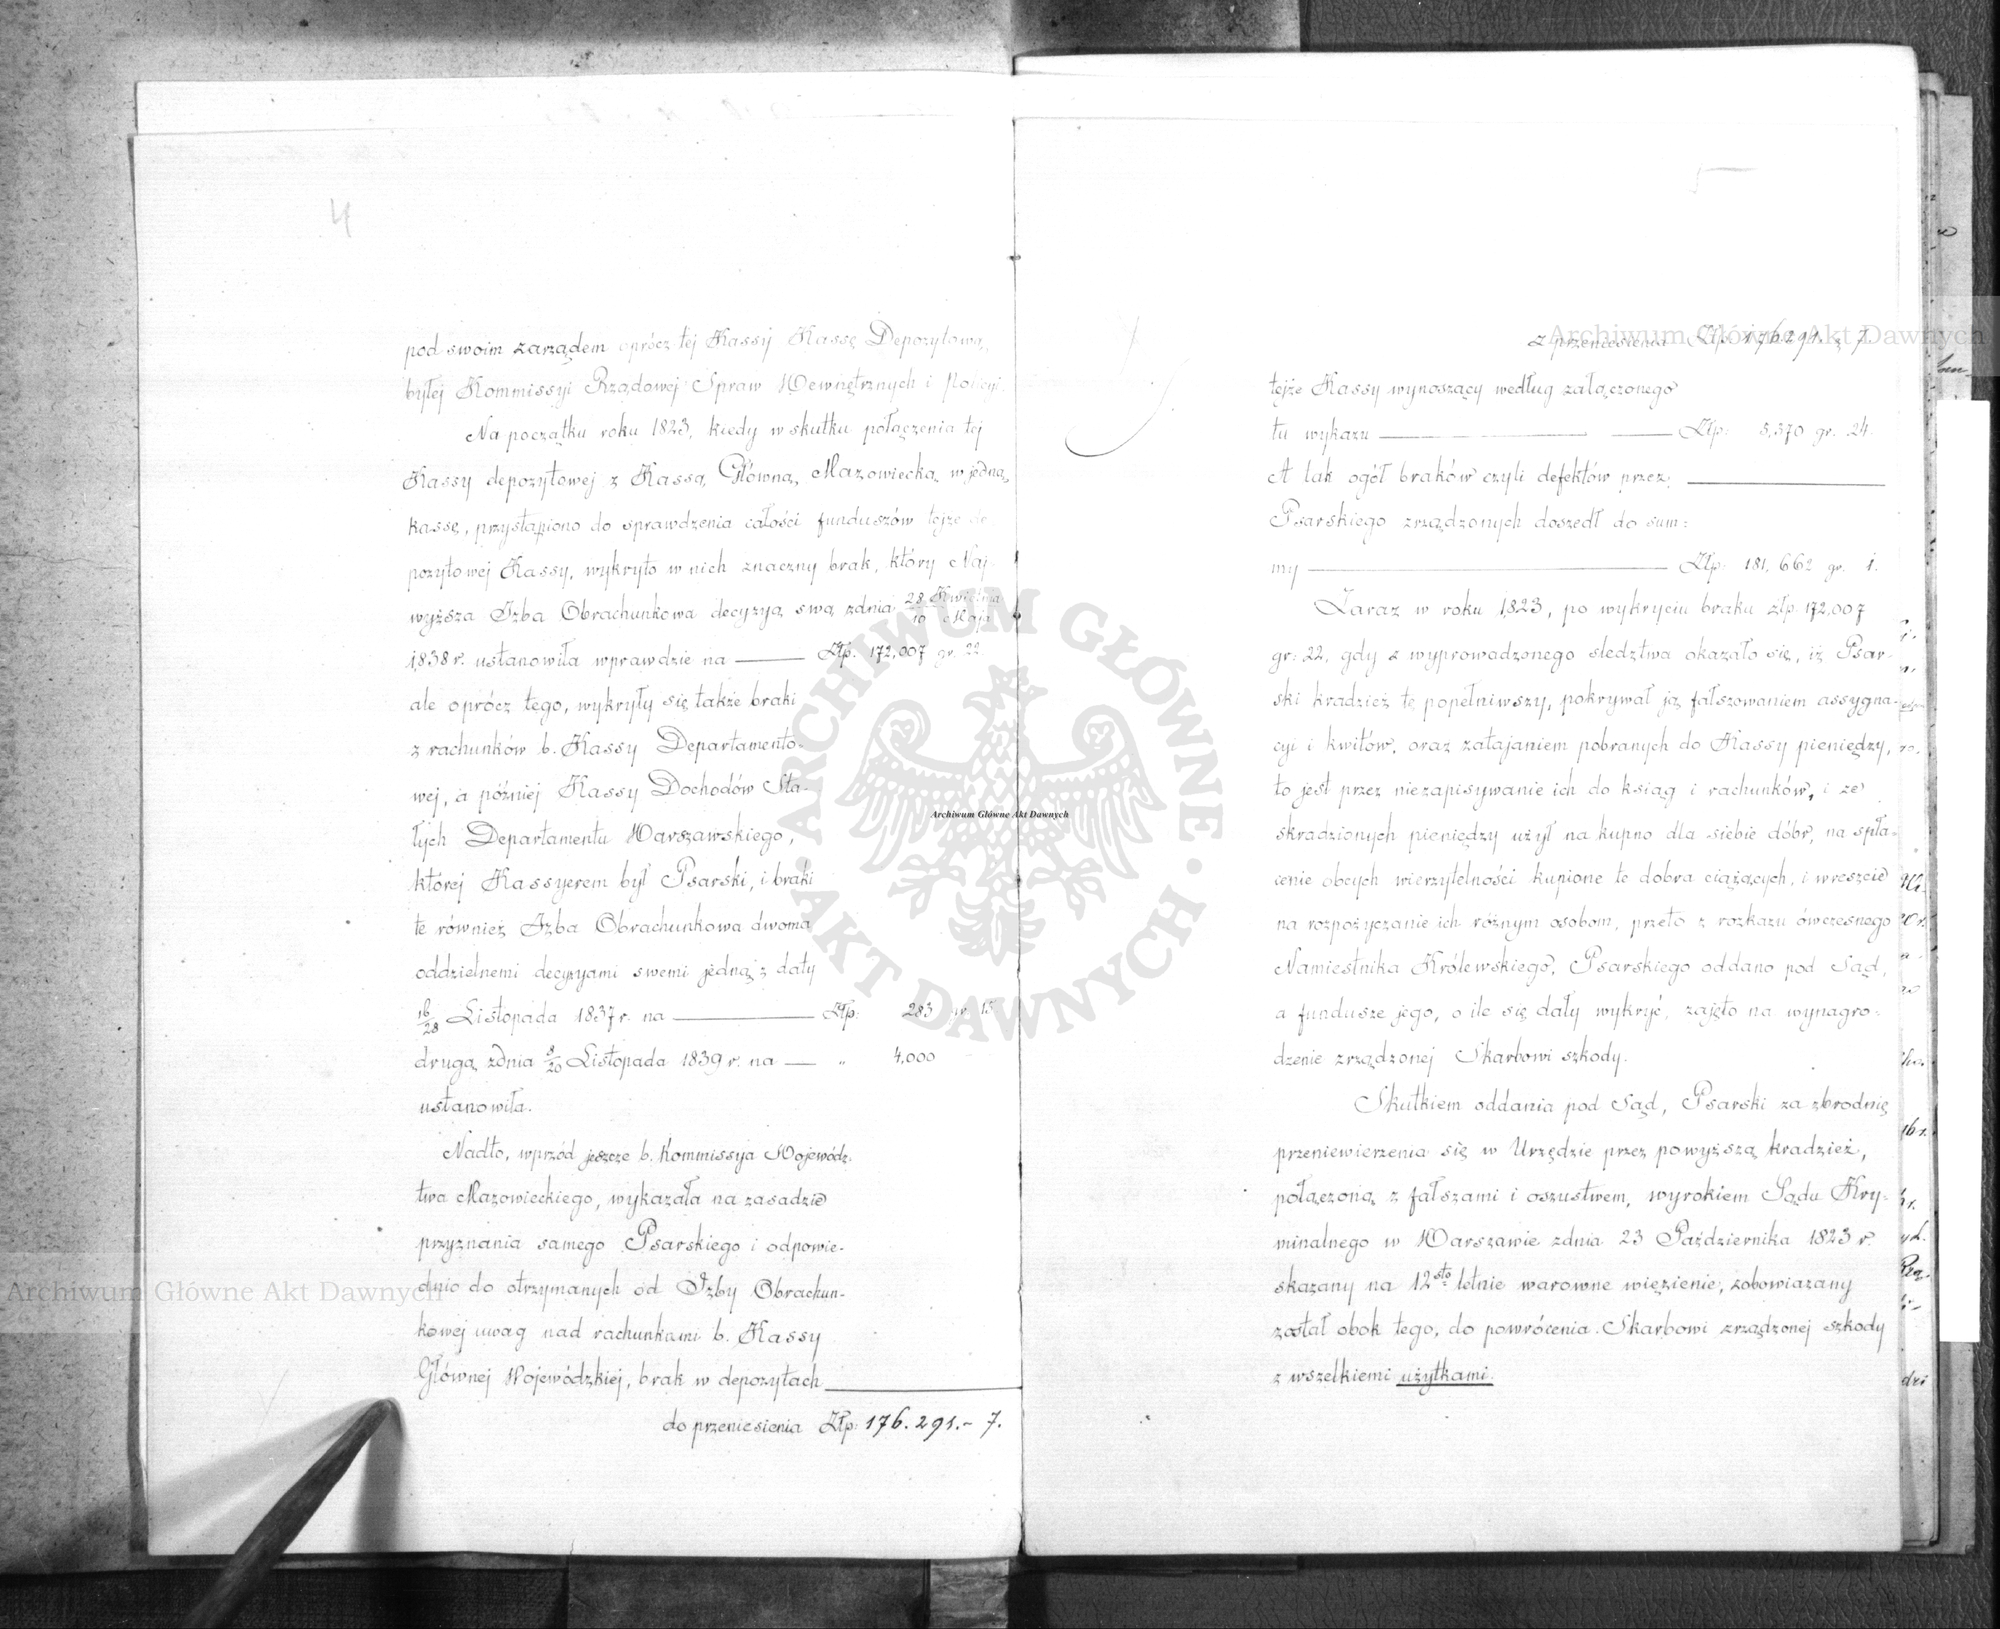 4
pod swoim zarządem oprócz tej Kassy Kassę Depozytową,
byłej Kommissyi Rządowej Spraw Wewnętrznych i Policyi.
Na początku roku 1823, kiedy wskutku połączenia tej
Kassy depozytowej z Kassą Główną Mazowiecką w jedną
kassę, przystąpiono do sprawdzenia całości funduszów tejże de-
pozytowej Kassy, wykryto w nich znaczny brak, który Naj-
wyższa Izba Obrachunkowa decyzyą swą zdnia 28 Kwietnia / 10 Maja
1838 r. ustanowiła wprawdzie na —— Złp. 172,007 gr. 22.
ale oprócz tego, wykryły się także braki
z rachunków b. Kassy Departamento-
wej, a później Kassy Dochodów Sta-
łych Departamentu Warszawskiego,
której Kassyerem był Psarski, i braki
te również Izba Obrachunkowa dwoma
oddzielnemi decyzyami swemi jedną z daty
16/28 Listopada 1837 r. na —— Złp: 283 gr. 15
drugą zdnia 8/20 Listopada 1839 r. na — „ 4,000
ustanowiła.
Nadto, wprzód jeszcze b. Kommissya Wojewódz-
twa Mazowieckiego, wykazała na zasadzie
przyznania samego Psarskiego i odpowie-
dnio do otrzymanych od Izby Obrachun-
kowej uwag nad rachunkami b. Kassy
Głównej Wojewódzkiej, brak w depozytach
do przeniesienia Złp: 176.291.- 7.
5
z przeniesienia Złp. 176291. g 7.
tejże Kassy wynoszący według załączonego
tu wykazu —— Złp: 5,370 gr. 24.
A tak ogół braków czyli defektów przez
Psarskiego zrządzonych doszedł do sum:
my —— Złp: 181,662 gr. 1.
Zaraz w roku 1823, po wykryciu braku złp. 172,007
gr: 22, gdy z wyprowadzonego śledztwa okazało się, iż Psar-
ski kradzież tę popełniwszy, pokrywał ją fałszowaniem assygna-
cyi i kwitów, oraz zatajaniem pobranych do Kassy pieniędzy,
to jest przez niezapisywanie ich do ksiąg i rachunków, i że
skradzionych pieniędzy użył na kupno dla siebie dóbr, na spła-
cenie obcych wierzytelności kupione te dobra ciążących, i wreszcie
na rozpożyczanie ich różnym osobom, przeto z rozkazu ówczesnego
Namiestnika Królewskiego, Psarskiego oddano pod Sąd,
a fundusze jego, o ile się dały wykryć, zajęto na wynagro-
dzenie zrządzonej Skarbowi szkody.
Skutkiem oddania pod Sąd, Psarski za zbrodnię
przeniewierzenia się w Urzędzie przez powyższą kradzież,
połączoną z fałszami i oszustwem, wyrokiem Sądu Kry-
minalnego w Warszawie zdnia 23 Października 1823 r.
skazany na 12sto letnie warowne więzienie, zobowiązany
został obok tego, do powrócenia Skarbowi zrządzonej szkody
z wszelkiemi użytkami.
Archiwum Główne Akt Dawnych
Archiwum Główne Akt Dawnych
Archiwum Główne Akt Dawnych
ARCHIWUM GŁÓWNE AKT DAWNYCH